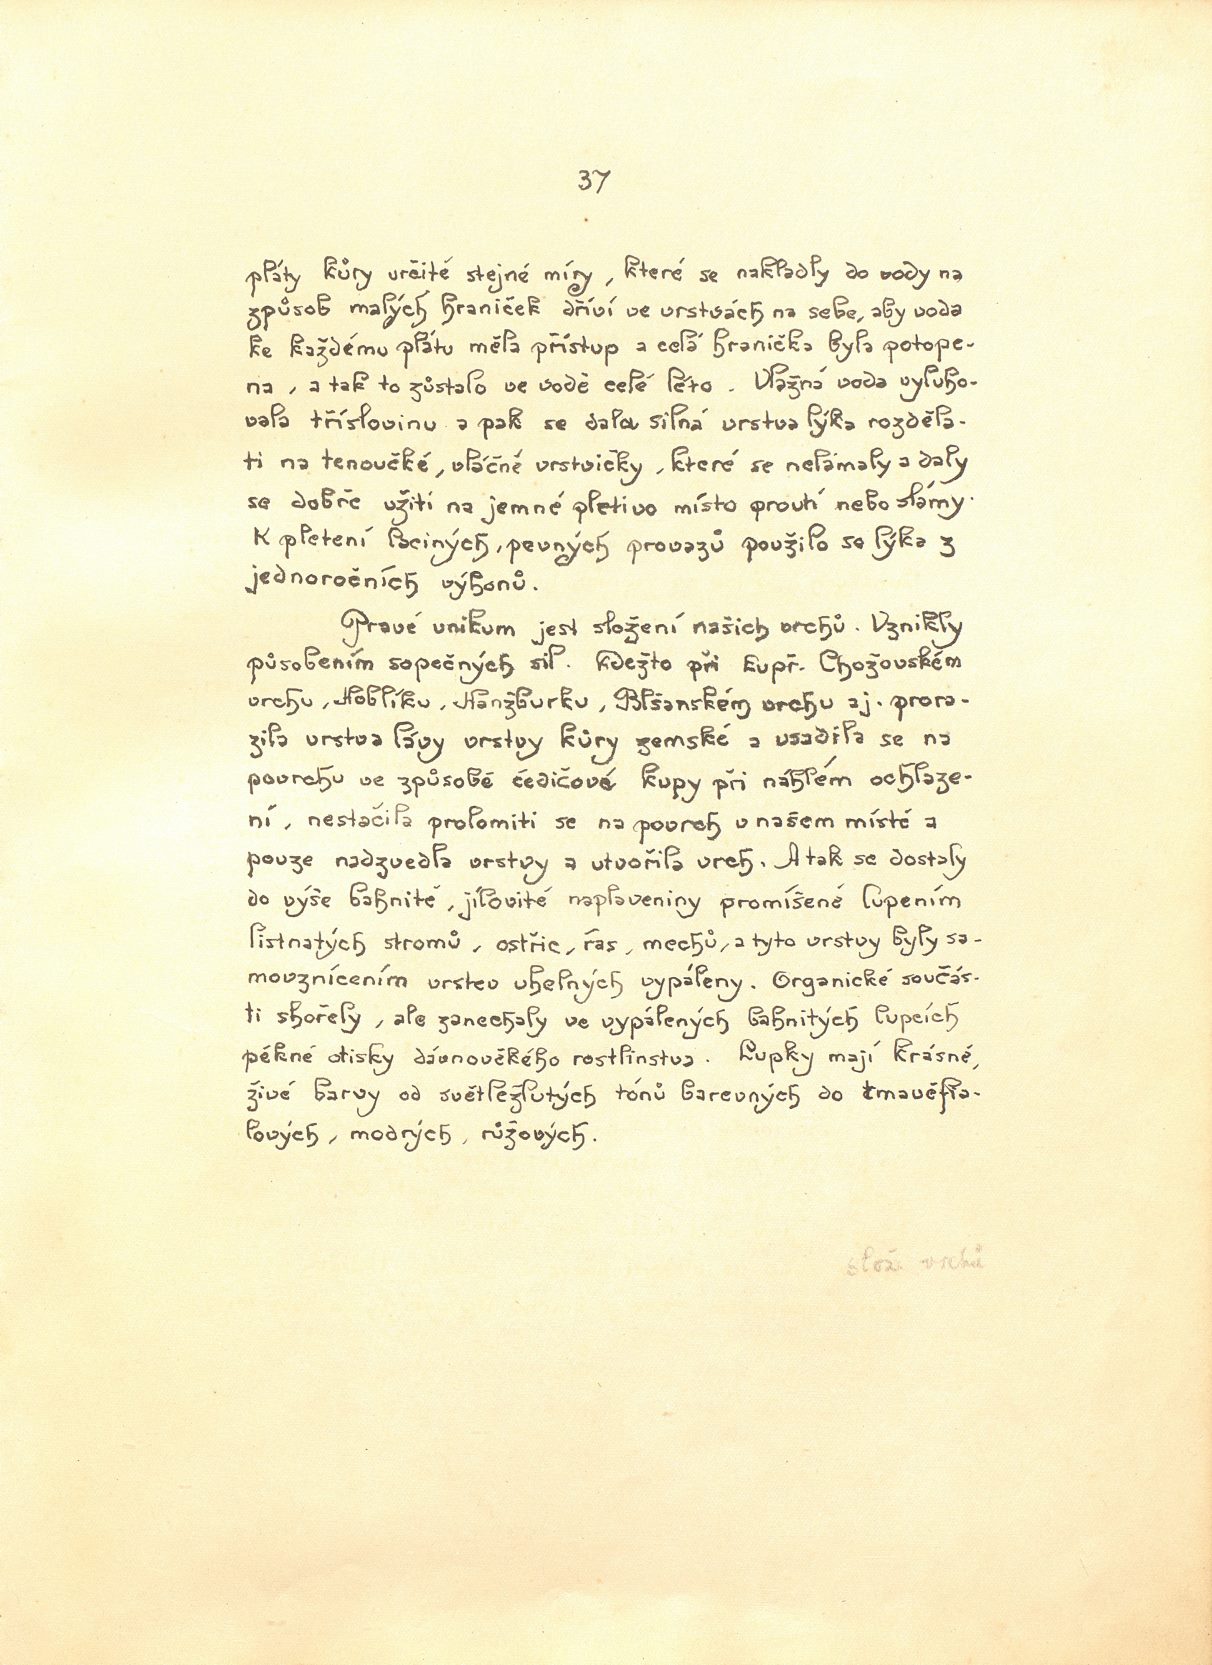 37
pláty kůry určité stejné míry, které se nakladly do vody na
způsob malých hraniček dříví ve vrstvách na sebe, aby voda
ke každému plátu měla přístup a celá hranička byla potope-
na, a tak to zůstalo ve vodě celé léto. Vlažná voda vyluho-
vala tříslovinu a pak se dala silná vrstva lýka rozděla-
ti na tenoučké, vláčné vrstvičky, které se nelámaly a daly
se dobře užíti na jemné pletivo místo proutí nebo slámy.
K pletení laciných, pevných provazů použilo se lýka z
jednoročních výhonů.
Pravé unikum jest složení našich vrchů. Vznikly
působením sopečných sil. Kdežto při kupř. Chožovském
vrchu, Hoblíku, Hanžburku, Blšanském vrchu aj. prora-
zila vrstva lávy vrstvy kůry zemské a usadila se na
povrchu ve způsobě čedičové kupy při náhlém ochlaze-
ní, nestačila prolomiti se na povrch v našem místě a
pouze nadzvedla vrstvy a utvořila vrch. A tak se dostaly
do výše bahnité, jílovité naplaveniny promíšené lupením
listnatých stromů, ostřic, řas, mechů, a tyto vrstvy byly sa-
movznícením vrstev uhelných vypáleny. Organické součás-
ti shořely, ale zanechaly ve vypálených bahnitých lupcích
pěkné otisky dávnověkého rostlinstva. Lupky mají krásné,
živé barvy od světležlutých tónů barevných do tmavěfia-
lových, modrých, růžových.
slož. vrchů